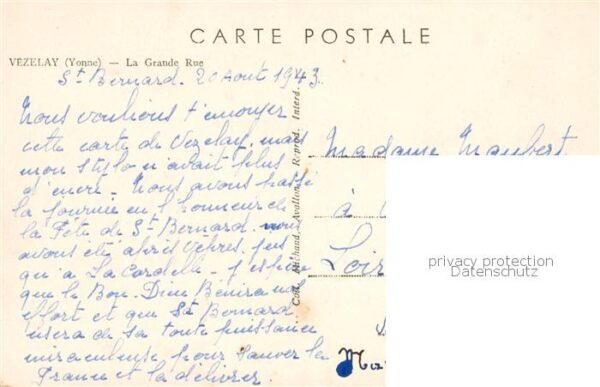 CARTE POSTALE
VÉZELAY (Yonne) — La Grande Rue
St Bernard. 20 Août 1943.
Nous voulions t'envoyer
cette carte de Vezelay, mais
mon stylo n'avait plus
d'encre - Nous avons passé
la journée en l'honneur de
la Fête de St Bernard. nous
avons été après Vêpres jus
qu'à La Cordelle - J'espère
que le Bon Dieu Bénira nos
effort et que St Bernard
usera de sa toute puissance
miraculeuse pour sauver la
France et la délivrer.
Avallon - Reprod. Interd.
Madame Maubert
à
Loir
privacy protection
Datenschutz